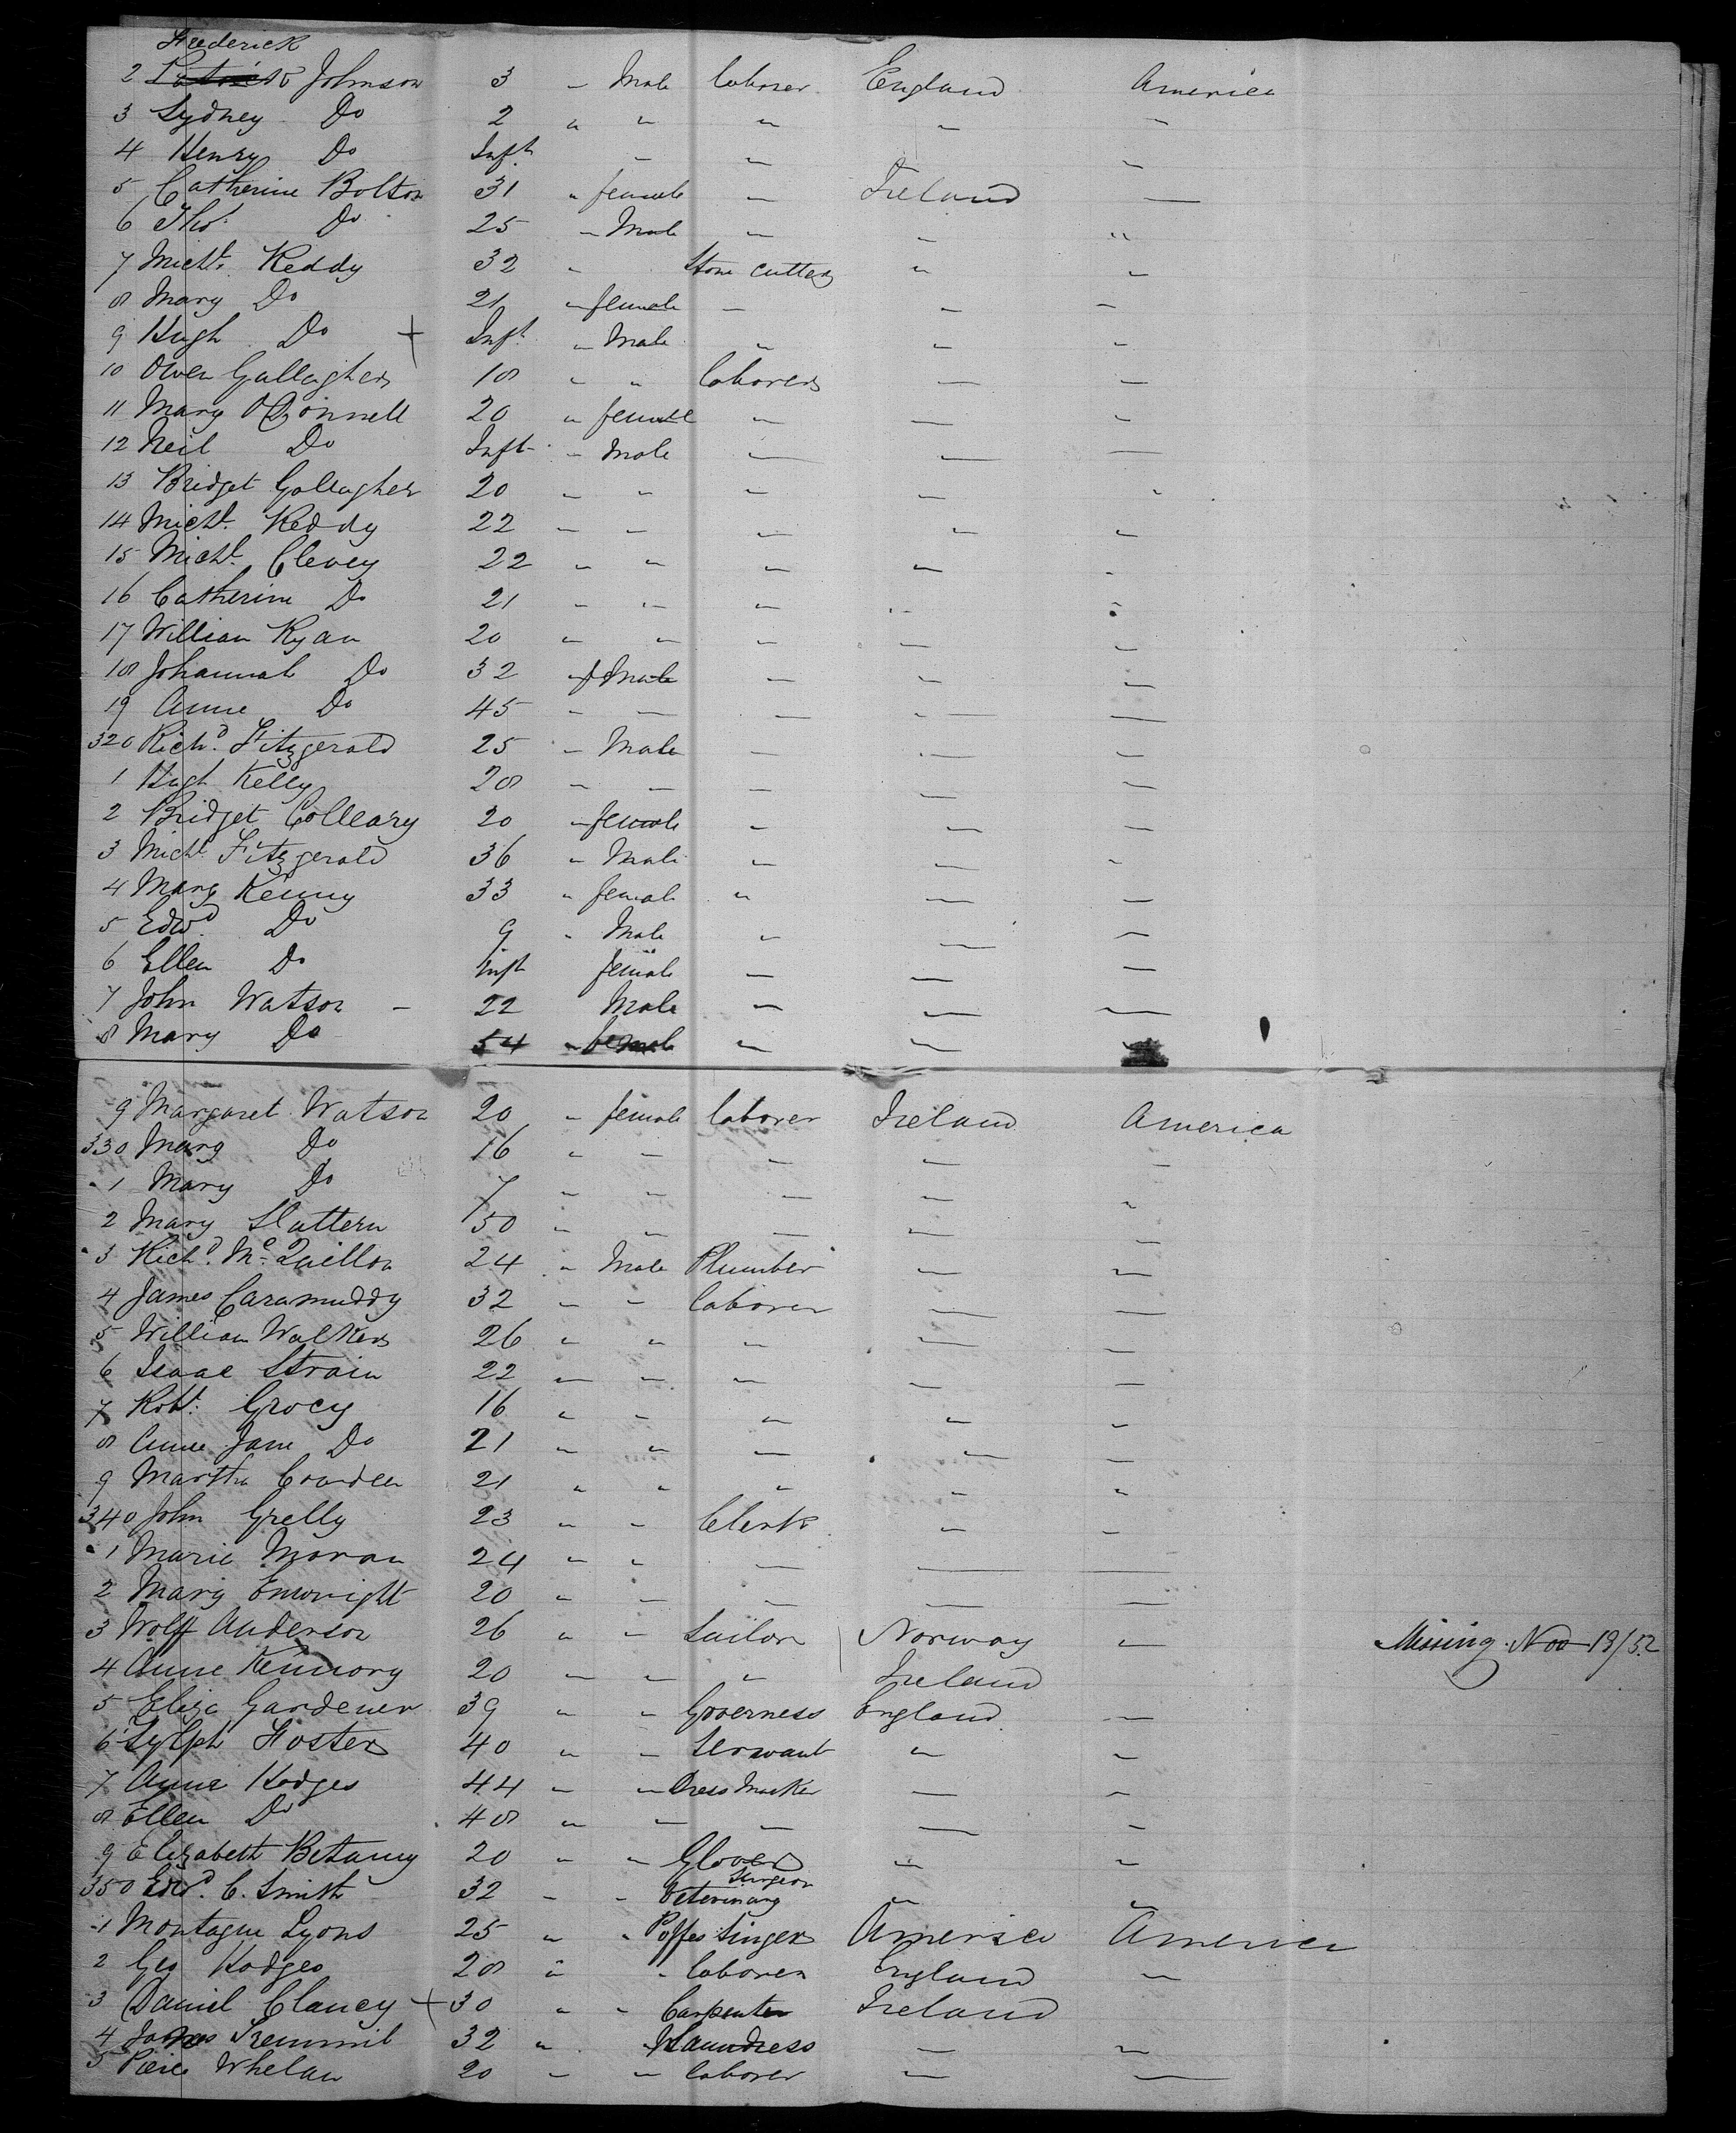 Frederick
2 Patrick Johnson 3 " Male laborer England America
3 Sydney Do 2 " " " " "
4 Henry Do Inft " " "
5 Catherine Bolton 31 " female " Ireland "
6 Thos Do 25 " Male " " "
7 Michl. Keddy 32 " Stone cutter " "
8 Mary Do 21 " female " " "
9 Hugh Do + Inft " Male " " "
10 Owen Gallagher 18 " " laborer " "
11 Mary O'Donnell 20 " female " " "
12 Neil Do Inft " Male " " "
13 Bridget Gallagher 20 " " " " "
14 Michl. Keddy 22 " " " " "
15 Michl. Clevey 22 " " " " "
16 Catherine Do 21 " " " " "
17 William Ryan 20 " " " " "
18 Johannah Do 32 " fMale " " "
19 Anne Do 45 " " " " "
320 Richd. Fitzgerald 25 " Male " " "
1 Hugh Kelly 28 " " " " "
2 Bridget Colleary 20 " female " " "
3 Michl Fitzgerald 36 " Male " " "
4 Mary Kenny 33 " female " " "
5 Edwd. Do 9 " Male " " "
6 Ellen Do Inft female " " "
7 John Watson - 22 Male " " "
8 Mary Do 54 " female " " "
9 Margaret Watson 20 " female laborer Ireland America
330 Mary Do 16 " " " " "
1 Mary Do 7 " " " " "
2 Mary Slattern 50 " " " " "
3 Richd. Mc Quillon 24 " Male Plumber " "
4 James Caramuddy 32 " " laborer " "
5 William Walker 26 " " " " "
6 Isaac Strain 22 " " " " "
7 Robt. Grocy 16 " " " " "
8 Anne Jane Do 21 " " " " "
9 Martha Cowden 21 " " " " "
340 John Grelly 23 " " Clerk " "
1 Marie Moran 24 " " " " "
2 Mary Enwright 20 " " " " "
3 Wolff Anderson 26 " " Sailor Norway " Missing Nov 19/52
4 Anne Kennory 20 " " " Ireland
5 Eliza Gardener 39 " " Governess England "
6 Sylph Foster 40 " " Servant " "
7 Anne Hodges 44 " " Dress Maker " "
8 Ellen Do 48 " " " " "
9 Elizabeth Betamy 20 " " Glover " "
Surgeon
350 Edwd. C. Smith 32 " " Veterinary " "
1 Montague Lyons 25 " " Poffes Singer America America
2 Geo Hodges 28 " " laborer England "
3 Daniel Clancy + 30 " " Carpenter Ireland
4 James 32 " Laundress " "
5 Pierce Whelan 20 " " laborer " "